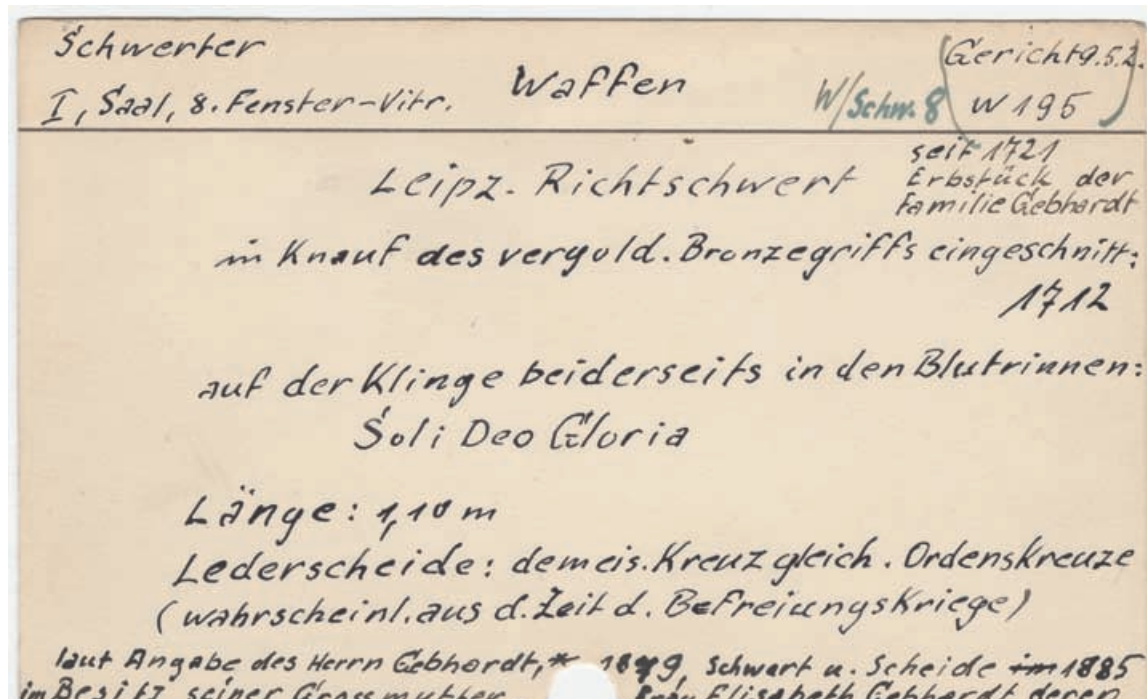 Schwerter
I, Saal, 8. Fenster-Vitr.
Waffen
W/Schw. 8
(Gericht 9.5.2.
W 195)
seit 1721
Erbstück der
Familie Gebhardt
Leipz. Richtschwert
in Knauf des vergold. Bronzegriffs eingeschnitt:
1712
auf der Klinge beiderseits in den Blutrinnen:
Soli Deo Gloria
Länge: 1,10 m
Lederscheide: dem eis. Kreuz gleich. Ordenskreuze
(wahrscheinl. aus d. Zeit d. Befreiungskriege)
laut Angabe des Herrn Gebhardt, * Schwert u. Scheide im 1885
im Besitz seiner Grossmutter Frau Elisabeth Gebhardt